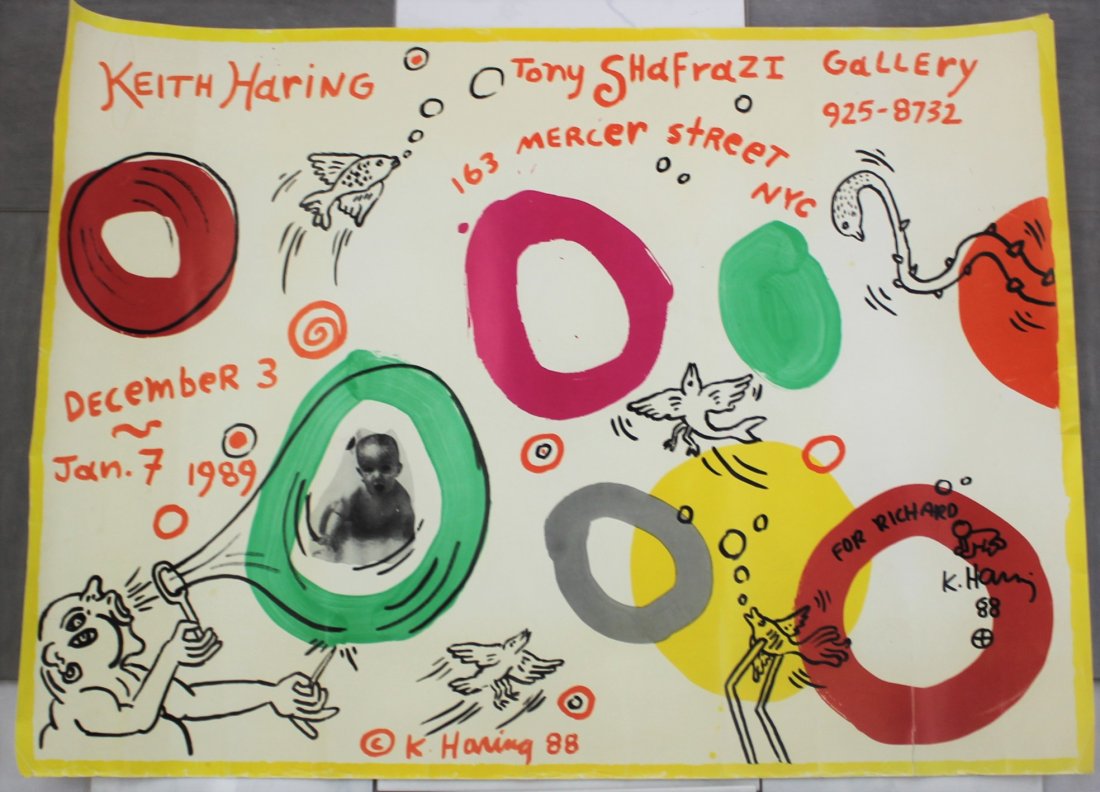 KEITH HARING
TONY SHAFRAZI GALLERY
925-8732
163 MERCER STREET
NYC
DECEMBER 3
~
Jan. 7 1989
FOR RICHARD
K. Haring
88
© K. Haring 88